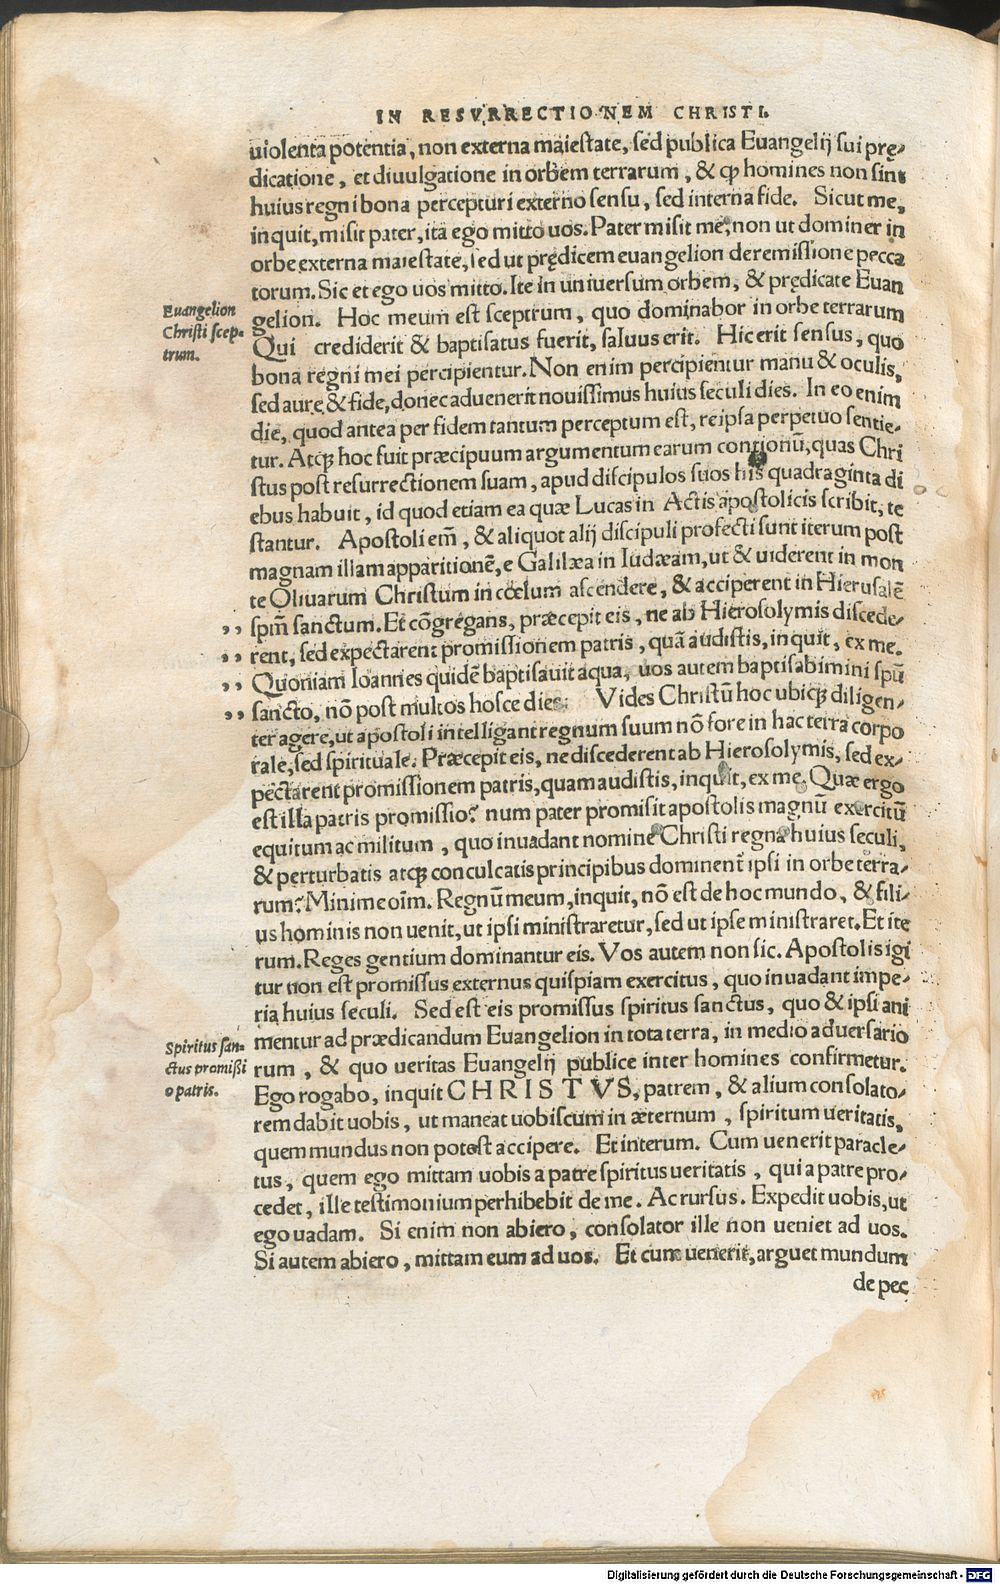 IN RESVRRECTIONEM CHRISTI.
uiolenta potentia, non externa maiestate, sed publica Euangelij sui prę-
dicatione, et diuulgatione in orbem terrarum, & ꝙ homines non sint
huius regni bona percepturi externo sensu, sed interna fide. Sicut me,
inquit, misit pater, ita ego mitto uos. Pater misit me, non ut dominer in
orbe externa maiestate, sed ut prędicem euangelion de remissione pecca
torum. Sic et ego uos mitto. Ite in uniuersum orbem, & prędicate Euan
Euangelion
Christi scep-
trum.
gelion. Hoc meum est sceptrum, quo dominabor in orbe terrarum
Qui crediderit & baptisatus fuerit, saluus erit. Hic erit sensus, quo
bona regni mei percipientur. Non enim percipientur manu & oculis,
sed aure & fide, donec aduenerit nouissimus huius seculi dies. In eo enim
die, quod antea per fidem tantum perceptum est, reipsa perpetuo sentie-
tur. Atqꝫ hoc fuit præcipuum argumentum earum contionū, quas Chri
stus post resurrectionem suam, apud discipulos suos his quadraginta di
ebus habuit, id quod etiam ea quæ Lucas in Actis apostolicis scribit, te
stantur. Apostoli em̃, & aliquot alij discipuli profecti sunt iterum post
magnam illam apparitionẽ, e Galilæa in Iudæam, ut & uiderent in mon
te Oliuarum Christum in cœlum ascendere, & acciperent in Hierusalẽ
,, spm̃ sanctum. Et cõgregans, præcepit eis, ne ab Hierosolymis discede-
,, rent, sed expectarent promissionem patris, quã audistis, inquit, ex me.
,, Quoniam Ioannes quidẽ baptisauit aqua, uos autem baptisabimini spũ
,, sancto, nõ post multos hosce dies. Vides Christũ hoc ubiqꝫ diligen-
ter agere, ut apostoli intelligant regnum suum nõ fore in hac terra corpo
rale, sed spirituale. Præcepit eis, ne discederent ab Hierosolymis, sed ex-
pectarent promissionem patris, quam audistis, inquit, ex me. Quæ ergo
est illa patris promissio? num pater promisit apostolis magnũ exercitũ
equitum ac militum, quo inuadant nomine Christi regna huius seculi,
& perturbatis atqꝫ conculcatis principibus dominent̃ ipsi in orbe terra-
rum? Minime oĩm. Regnũ meum, inquit, nõ est de hoc mundo, & fili-
us hominis non uenit, ut ipsi ministraretur, sed ut ipse ministraret. Et ite
rum. Reges gentium dominantur eis. Vos autem non sic. Apostolis igi
tur non est promissus externus quispiam exercitus, quo inuadant impe-
ria huius seculi. Sed est eis promissus spiritus sanctus, quo & ipsi ani
Spiritus san-
ctus promißi
o patris.
mentur ad prædicandum Euangelion in tota terra, in medio aduersario
rum, & quo ueritas Euangelij publice inter homines confirmetur.
Ego rogabo, inquit CHRISTVS, patrem, & alium consolato-
rem dabit uobis, ut maneat uobiscum in æternum, spiritum ueritatis,
quem mundus non potest accipere. Et interum. Cum uenerit paracle-
tus, quem ego mittam uobis a patre spiritus ueritatis, qui a patre pro-
cedet, ille testimonium perhibebit de me. Ac rursus. Expedit uobis, ut
ego uadam. Si enim non abiero, consolator ille non ueniet ad uos.
Si autem abiero, mittam eum ad uos. Et cum uenerit, arguet mundum
de pec
Digitalisierung gefördert durch die Deutsche Forschungsgemeinschaft - DFG